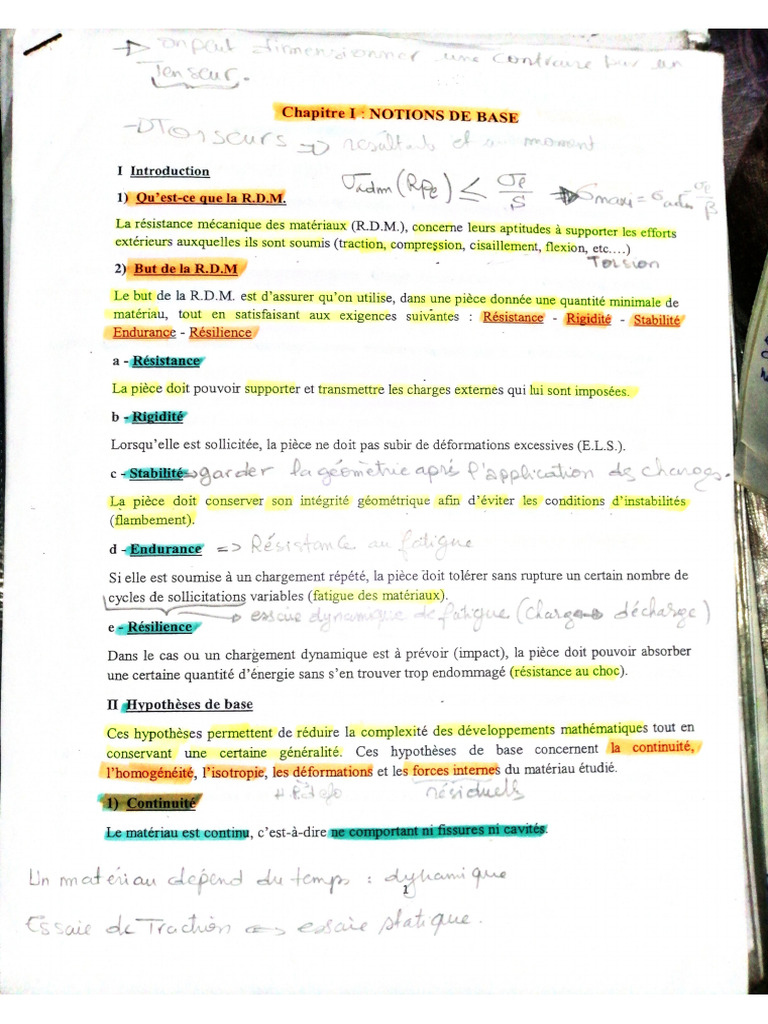 → on peut dimensionner une contraire par un
Tenseur.
Chapitre I : NOTIONS DE BASE
→ Torseurs ⇒ résultant et un moment
I Introduction
1) Qu'est-ce que la R.D.M.
σadm (Rpe) ≤ σe/S → σmaxi = σadm
La résistance mécanique des matériaux (R.D.M.), concerne leurs aptitudes à supporter les efforts
extérieurs auxquelles ils sont soumis (traction, compression, cisaillement, flexion, etc.…)
Torsion
2) But de la R.D.M
Le but de la R.D.M. est d'assurer qu'on utilise, dans une pièce donnée une quantité minimale de
matériau, tout en satisfaisant aux exigences suivantes : Résistance - Rigidité - Stabilité
Endurance - Résilience
a - Résistance
La pièce doit pouvoir supporter et transmettre les charges externes qui lui sont imposées.
b - Rigidité
Lorsqu'elle est sollicitée, la pièce ne doit pas subir de déformations excessives (E.L.S.).
c - Stabilité → garder la géométrie aprés l'application des charges.
La pièce doit conserver son intégrité géométrique afin d'éviter les conditions d'instabilités
(flambement).
d - Endurance => Résistance au fatigue
Si elle est soumise à un chargement répété, la pièce doit tolérer sans rupture un certain nombre de
cycles de sollicitations variables (fatigue des matériaux).
→ essaie dynamique de fatigue (charge → décharge)
e - Résilience
Dans le cas ou un chargement dynamique est à prévoir (impact), la pièce doit pouvoir absorber
une certaine quantité d'énergie sans s'en trouver trop endommagé (résistance au choc).
II Hypothèses de base
Ces hypothèses permettent de réduire la complexité des développements mathématiques tout en
conservant une certaine généralité. Ces hypothèses de base concernent la continuité,
l'homogénéité, l'isotropie, les déformations et les forces internes du matériau étudié.
résiduels
1) Continuité
Le matériau est continu, c'est-à-dire ne comportant ni fissures ni cavités.
Un matériau dépend du temps : dynamique
1
Essaie de Traction => essaie statique.